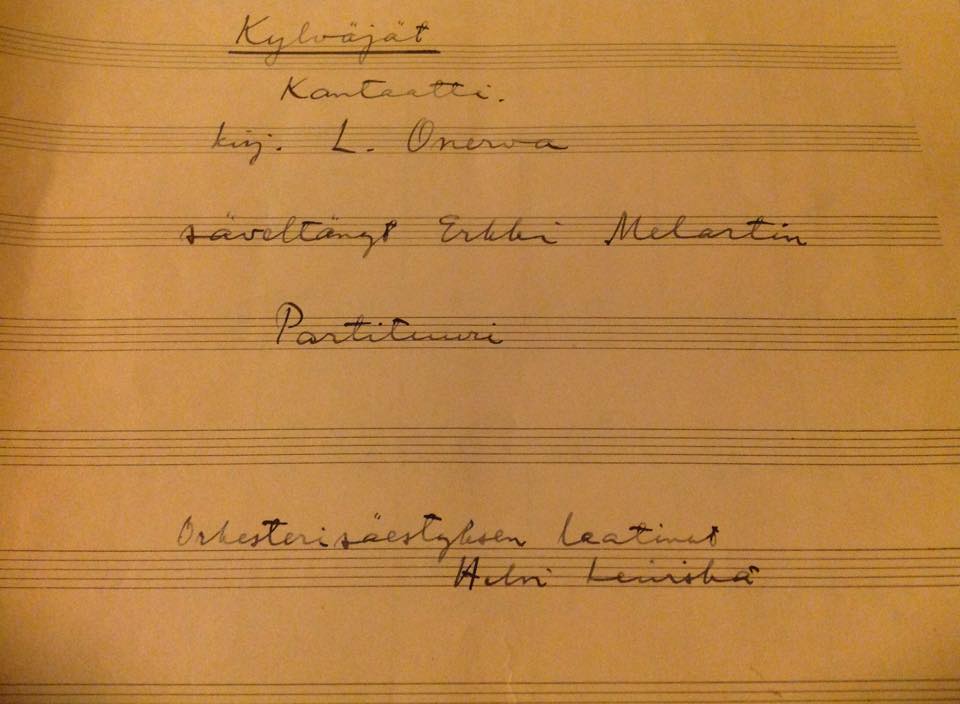 Kylväjät
Kantaatti.
kirj. L. Onerva
säveltänyt Erkki Melartin
Partituuri
Orkesterisäestyksen laatinut
Helvi Leiviskä